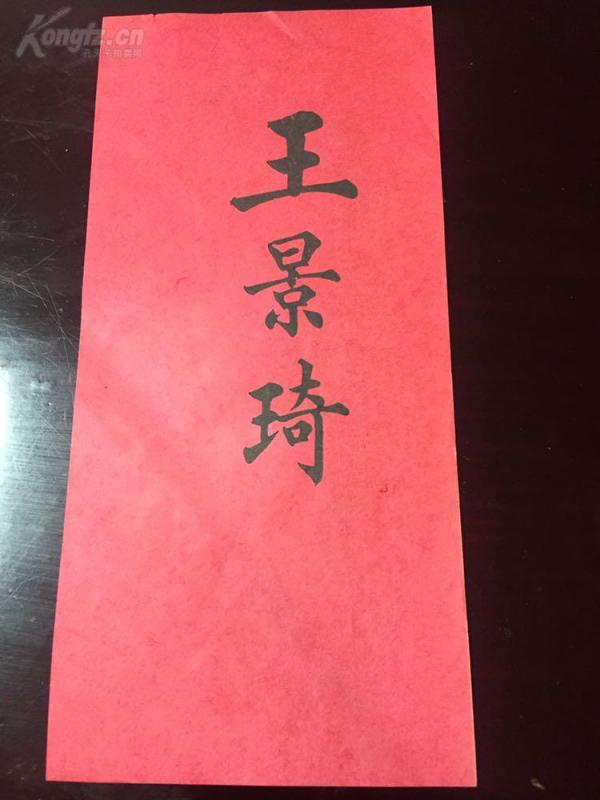 Kongfz.cn
孔夫子拍卖网
王景琦